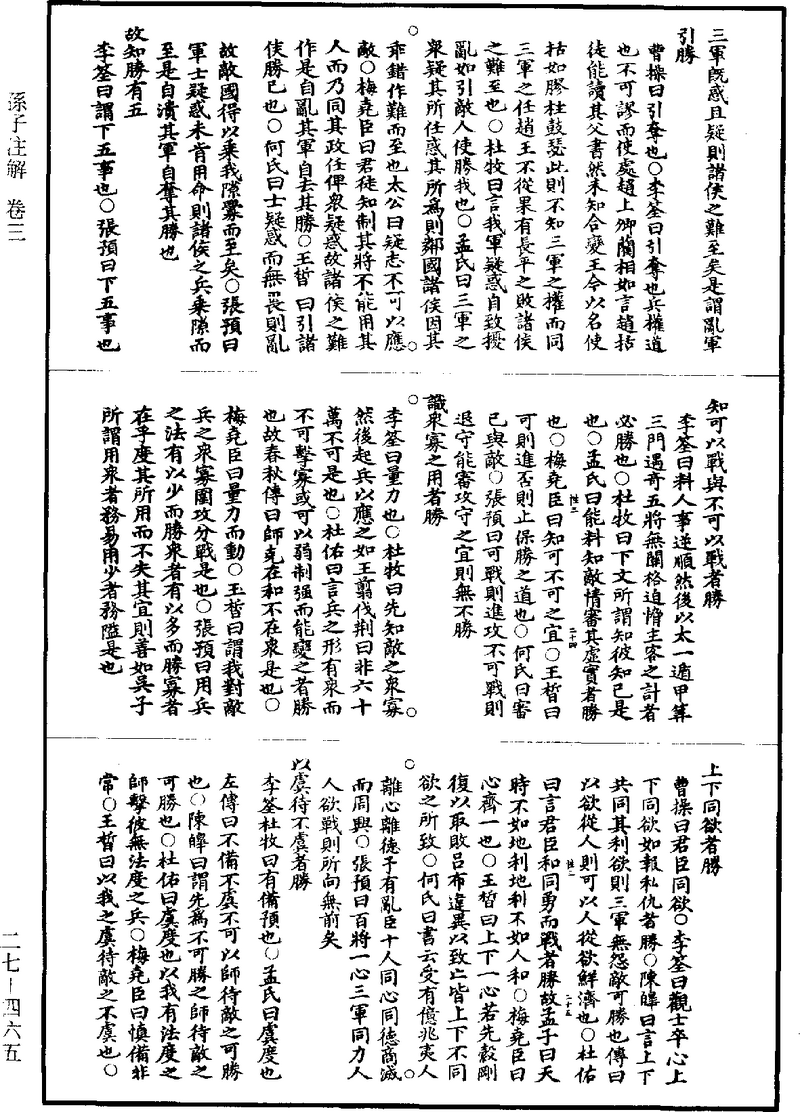 三軍既惑且疑則諸侯之難至矣是謂亂軍
引勝
曹操曰引奪也○李筌曰引奪也兵權道
也不可謬而使處趙上卿藺相如言趙括
徒能讀其父書然未知合變王今以名使
括如膠柱鼓瑟此則不知三軍之權而同
三軍之任趙王不從果有長平之敗諸侯
之難至也○杜牧曰言我軍疑惑自致擾
亂如引敵人使勝我也○孟氏曰三軍之
衆疑其所任惑其所爲則鄰國諸侯因其
乖錯作難而至也太公曰疑志不可以應
敵○梅堯臣曰君徒知制其將不能用其
人而乃同其政任俾衆疑惑故諸侯之難
作是自亂其軍自去其勝○王晳曰引諸
侯勝已也○何氏曰士疑惑而無畏則亂
故敵國得以乘我隙釁而至矣○張預曰
軍士疑惑未肯用命則諸侯之兵乘隙而
至是自潰其軍自奪其勝也
故知勝有五
李筌曰謂下五事也○張預曰下五事也
知可以戰與不可以戰者勝
李筌曰料人事逆順然後以太一遁甲筭
三門遇奇五將無關格迫憎主客之計者
必勝也○杜牧曰下文所謂知彼知已是
也○孟氏曰能料知敵情審其虛實者勝
也○梅堯臣曰知可不可之宜○王晳曰
可則進否則止保勝之道也○何氏曰審
已與敵○張預曰可戰則進攻不可戰則
退守能審攻守之宜則無不勝
識衆寡之用者勝
李筌曰量力也○杜牧曰先知敵之衆寡
然後起兵以應之如王翦伐荆曰非六十
萬不可是也○杜佑曰言兵之形有衆而
不可擊寡或可以弱制强而能變之者勝
也故春秋傳曰師克在和不在衆是也○
梅堯臣曰量力而動○王晳曰謂我對敵
兵之衆寡圍攻分戰是也○張預曰用兵
之法有以少而勝衆者有以多而勝寡者
在乎度其所用而不失其宜則善如吳子
所謂用衆者務易用少者務隘是也
上下同欲者勝
曹操曰君臣同欲○李筌曰觀士卒心上
下同欲如報私仇者勝○陳皥曰言上下
共同其利欲則三軍無怨敵可勝也傳曰
以欲從人則可以人從欲鮮濟也○杜佑
曰言君臣和同勇而戰者勝故孟子曰天
時不如地利地利不如人和○梅堯臣曰
心齊一也○王晳曰上下一心若先縠剛
愎以取敗呂布違異以致亡皆上下不同
欲之所致○何氏曰書云受有億兆夷人
離心離德予有亂臣十人同心同德商滅
而周興○張預曰百將一心三軍同力人
人欲戰則所向無前矣
以虞待不虞者勝
李筌杜牧曰有備預也○孟氏曰虞度也
左傳曰不備不虞不可以師待敵之可勝
也○陳皥曰謂先爲不可勝之師待敵之
可勝也○杜佑曰虞度也以我有法度之
師擊彼無法度之兵○梅堯臣曰慎備非
常○王晳曰以我之虞待敵之不虞也○
孫子注解 卷三
二七－四六五